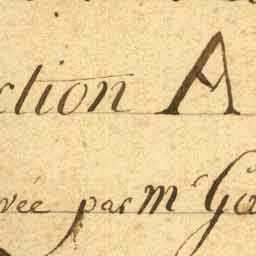 ction A
vée par Mr Ga